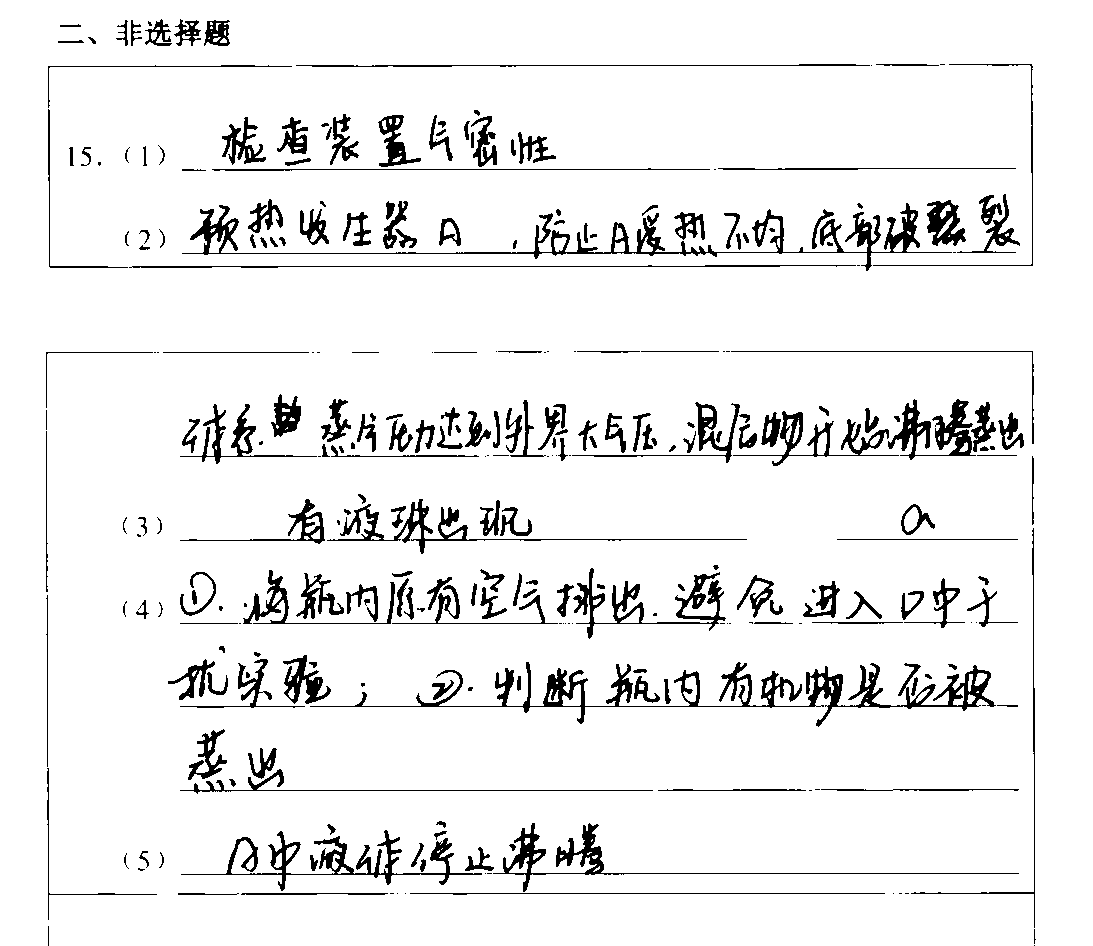 二、非选择题
15.（1） 检查装置气密性
（2） 预热发生器A ，防止A受热不均，底部破裂
体系 蒸气压力达到外界大气压，混合物开始沸腾蒸出
（3） 有液珠出现 a
（4） ①. 将瓶内原有空气排出. 避免进入D中干
扰实验； ②. 判断瓶内有机物是否被
蒸出
（5） A中液体停止沸腾